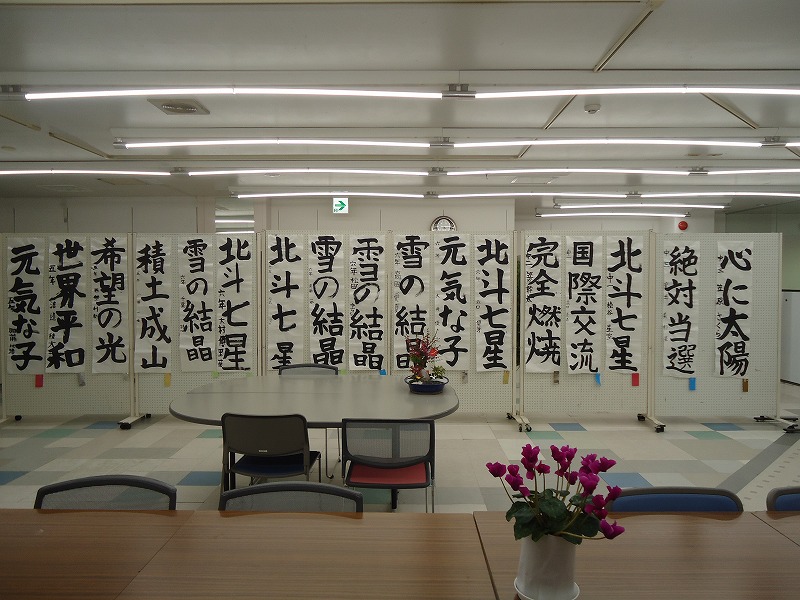 心に太陽
絶対当選
北斗七星
国際交流
完全燃焼
北斗七星
元気な子
雪の結晶
雪の結晶
雪の結晶
北斗七星
北斗七星
雪の結晶
積土成山
希望の光
世界平和
元気な子